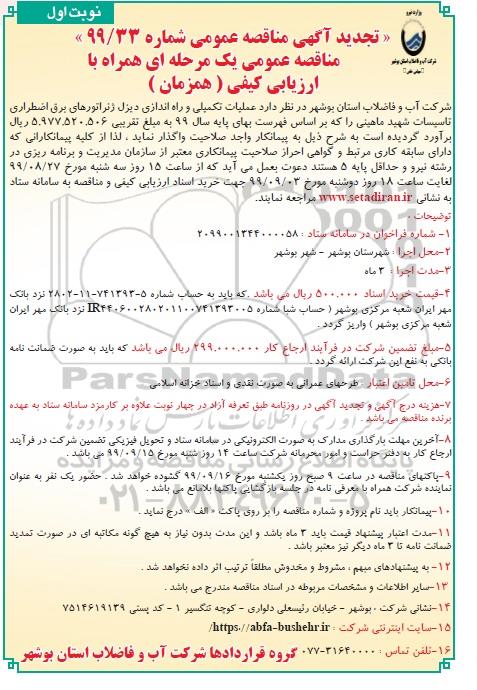 نوبت اول
وزارت نیرو
شرکت آب و فاضلاب استان بوشهر
(سهامی خاص)
« تجدید آگهی مناقصه عمومی شماره ۹۹/۳۳ »
مناقصه عمومی یک مرحله ای همراه با
ارزیابی کیفی ( همزمان )
شرکت آب و فاضلاب استان بوشهر در نظر دارد عملیات تکمیلی و راه اندازی دیزل ژنراتورهای برق اضطراری
تاسیسات شهید ماهینی را که بر اساس فهرست بهای پایه سال ۹۹ به مبلغ تقریبی ۵.۹۷۷.۵۲۰.۵۰۶ ریال
برآورد گردیده است به شرح ذیل به پیمانکار واجد صلاحیت واگذار نماید ، لذا از کلیه پیمانکارانی که
دارای سابقه کاری مرتبط و گواهی احراز صلاحیت پیمانکاری معتبر از سازمان مدیریت و برنامه ریزی در
رشته نیرو و حداقل پایه ۵ هستند دعوت بعمل می آید که از ساعت ۱۵ روز سه شنبه مورخ ۹۹/۰۸/۲۷
لغایت ساعت ۱۸ روز دوشنبه مورخ ۹۹/۰۹/۰۳ جهت خرید اسناد ارزیابی کیفی و مناقصه به سامانه ستاد
به نشانی www.setadiran.ir مراجعه نمایند.
توضیحات :
۱- شماره فراخوان در سامانه ستاد : ۲۰۹۹۰۰۱۳۴۴۰۰۰۰۵۸
۲-محل اجرا : شهرستان بوشهر - شهر بوشهر
۳-مدت اجرا : ۳ ماه
۴-قیمت خرید اسناد ۵۰۰.۰۰۰ ریال می باشد .که باید به حساب شماره ۵-۷۴۱۳۹۳-۱۱-۲۸۰۲ نزد بانک
مهر ایران شعبه مرکزی بوشهر ( حساب شبا شماره IR۴۴۰۶۰۰۲۸۰۲۰۱۱۰۰۷۴۱۳۹۳۰۰۵ نزد بانک مهر ایران
شعبه مرکزی بوشهر ) واریز گردد .
۵-مبلغ تضمین شرکت در فرآیند ارجاع کار ۲۹۹.۰۰۰.۰۰۰ ریال می باشد که باید به صورت ضمانت نامه
بانکی به نفع این شرکت ارائه گردد .
۶-محل تامین اعتبار : طرحهای عمرانی به صورت نقدی و اسناد خزانه اسلامی
۷-هزینه درج آگهی و تجدید آگهی در روزنامه طبق تعرفه آزاد در چهار نوبت علاوه بر کارمزد سامانه ستاد به عهده
برنده مناقصه می باشد .
۸-آخرین مهلت بارگذاری مدارک به صورت الکترونیکی در سامانه ستاد و تحویل فیزیکی تضمین شرکت در فرآیند
ارجاع کار به دفتر حراست و امور محرمانه شرکت ساعت ۱۴ روز شنبه مورخ ۹۹/۰۹/۱۵ می باشد .
۹-پاکتهای مناقصه در ساعت ۹ صبح روز یکشنبه مورخ ۹۹/۰۹/۱۶ گشوده خواهد شد . حضور یک نفر به عنوان
نماینده شرکت همراه با معرفی نامه در جلسه بازگشایی پاکتها بلامانع می باشد .
۱۰-پیمانکار باید نام پروژه و شماره مناقصه را بر روی پاکت « الف » درج نماید .
۱۱-مدت اعتبار پیشنهاد قیمت باید ۳ ماه باشد و این مدت بدون نیاز به هیچ گونه مکاتبه ای در صورت تمدید
ضمانت نامه تا ۳ ماه دیگر نیز معتبر باشد .
۱۲- به پیشنهادهای مبهم ، مشروط و مخدوش مطلقاً ترتیب اثر داده نخواهد شد .
۱۳-سایر اطلاعات و مشخصات مربوطه در اسناد مناقصه مندرج می باشد .
۱۴-نشانی شرکت : بوشهر - خیابان رئیسعلی دلواری - کوچه تنگسیر ۱ - کد پستی ۷۵۱۴۶۱۹۱۳۹
۱۵-سایت اینترنتی شرکت : https://abfa-bushehr.ir/
۱۶-تلفن تماس : ۳۱۶۴۰۰۰۰-۰۷۷ گروه قراردادها شرکت آب و فاضلاب استان بوشهر